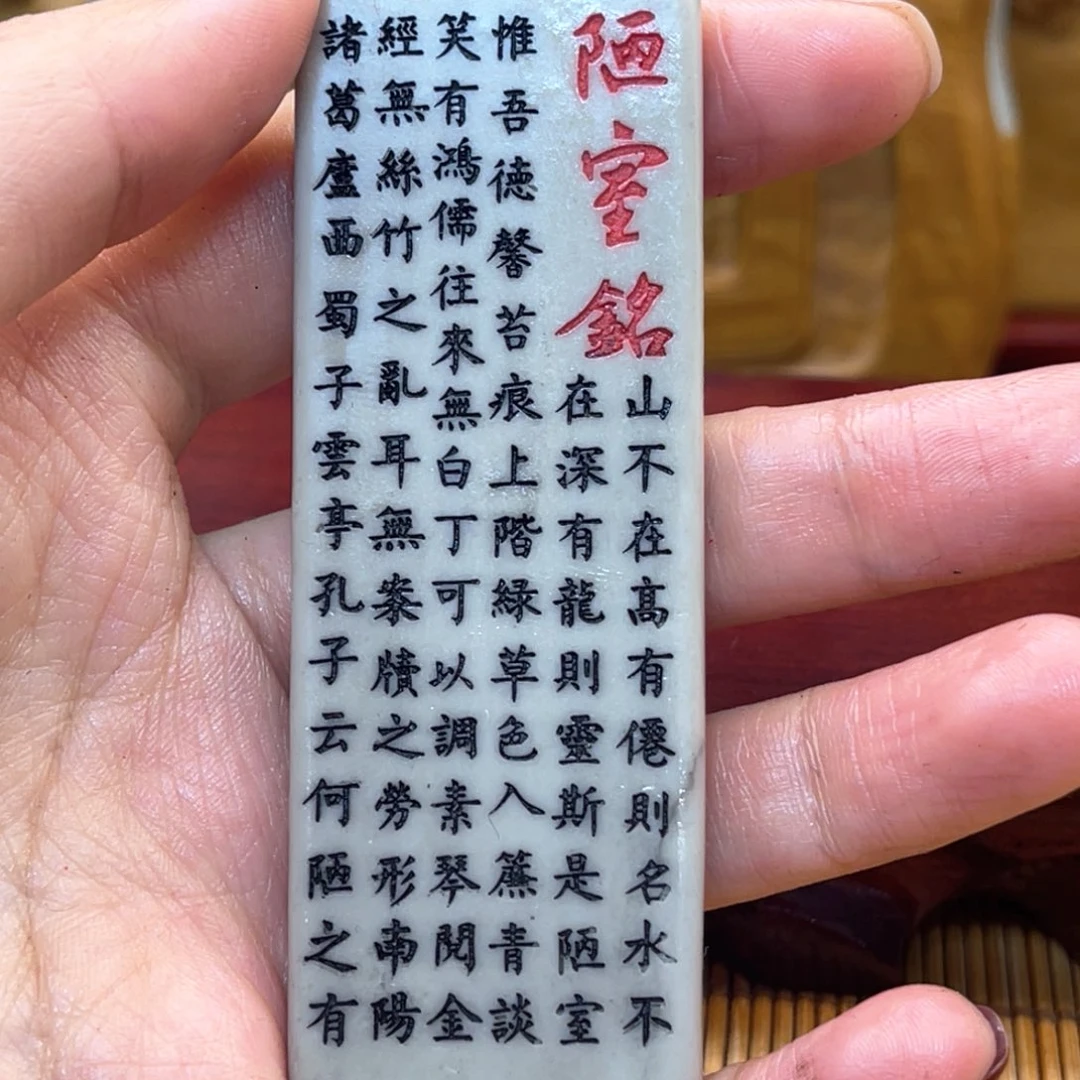 陋室銘
山不在髙有僊則名水不
在深有龍則靈斯是陋室
惟吾德馨苔痕上階緑草色入簾青談
笑有鴻儒往來無白丁可以調素琴閱金
經無絲竹之亂耳無案牘之勞形南陽
諸葛廬西蜀子雲亭孔子云何陋之有